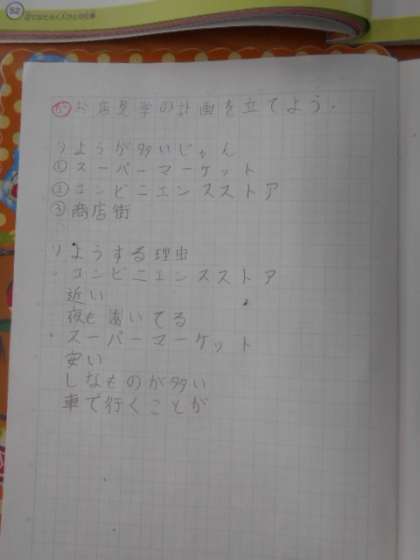 52
が お店見学の計画を立てよう.
りようが多いじゅん
① スーパーマーケット
② コンビニエンスストア
③ 商店街
りようする理由
・コンビニエンスストア
近い
夜も 開いてる
・スーパーマーケット
安い
しなものが多い
車で行くことが